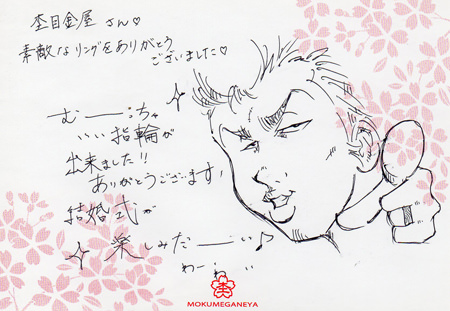 杢目金屋 さん♡
素敵なリングをありがとう
ございました♡
むーーっちゃ
いい指輪が
出来ました!!
ありがとうございます!
結婚式が
楽しみだーーい♪
わーい
杢
MOKUMEGANEYA